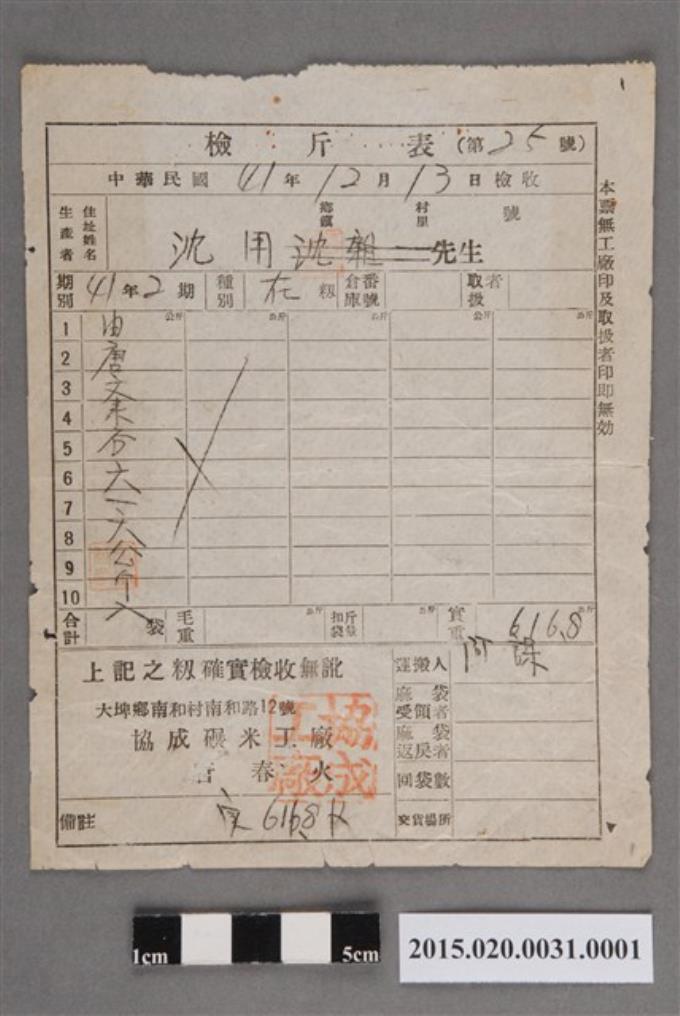 檢斤表(第25號)
中華民國41年12月13日檢收
生產者 住址姓名 鄉鎮 村里 號
沈用沈 先生
期別 41年2期 種別 在籾 倉庫番號 取扱者
公斤 公斤 公斤 公斤 公斤
1
2
3
4
5
6
7
8
9
10
由唐文來分六一六公斤入
合計 袋 毛重 公斤 扣袋斤量 公斤 實重 616.8 公斤
上記之籾確實檢收無訛
大埤鄉南和村南和路12號
協成碾米工廠
春火
協成工廠
備註 616.8K
運搬人
麻袋受領者
麻袋返戾者
回袋數
交貨場所
本票無工廠印及取扱者印即無効
1cm 5cm
2015.020.0031.0001